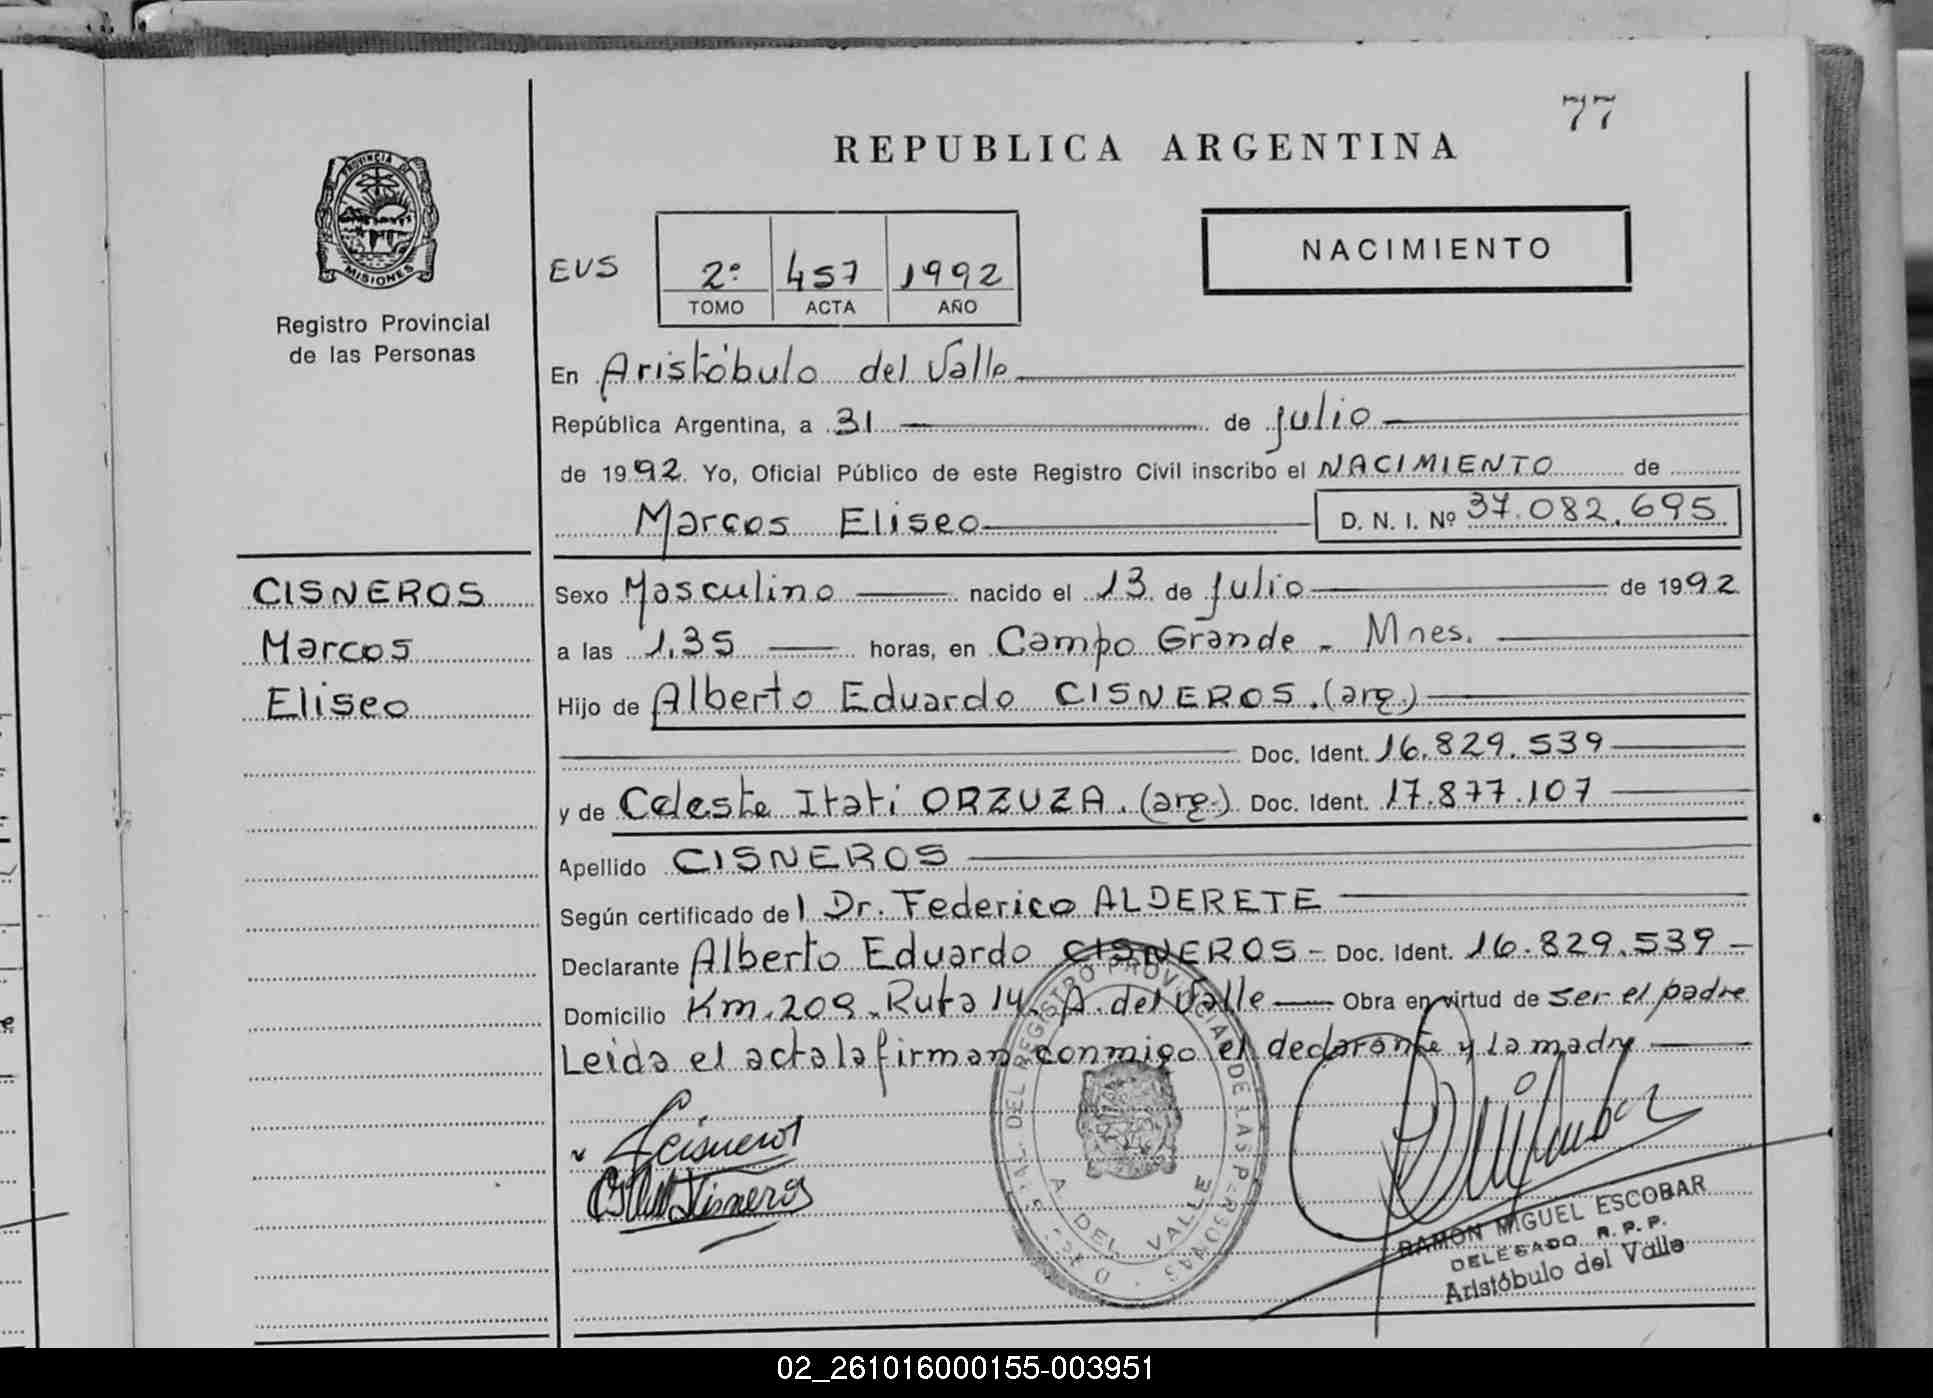 77
REPUBLICA ARGENTINA
PROVINCIA DE
MISIONES
Registro Provincial
de las Personas
EUS
2º 457 1992
TOMO ACTA AÑO
NACIMIENTO
En Aristóbulo del Valle
República Argentina, a 31 de julio
de 1992. Yo, Oficial Público de este Registro Civil inscribo el NACIMIENTO de
Marcos Eliseo D. N. I. Nº 37.082.695
CISNEROS
Marcos
Eliseo
Sexo Masculino nacido el 13 de julio de 1992
a las 1.35 horas, en Campo Grande - Mnes.
Hijo de Alberto Eduardo CISNEROS. (arg.)
Doc. Ident. 16.829.539
y de Celeste Itati ORZUZA. (arg.) Doc. Ident. 17.877.107
Apellido CISNEROS
Según certificado del Dr. Federico ALDERETE
Declarante Alberto Eduardo CISNEROS - Doc. Ident. 16.829.539
Domicilio Km. 209. Ruta 14. A. del Valle Obra en virtud de ser el padre
Leida el acta la firman conmigo el declarante y la madre
Cisneros
Cisneros
REGISTRO PROVINCIAL DE LAS PERSONAS
A. DEL VALLE
RAMON MIGUEL ESCOBAR
DELEGADO R.P.P.
Aristóbulo del Valle
02_261016000155-003951